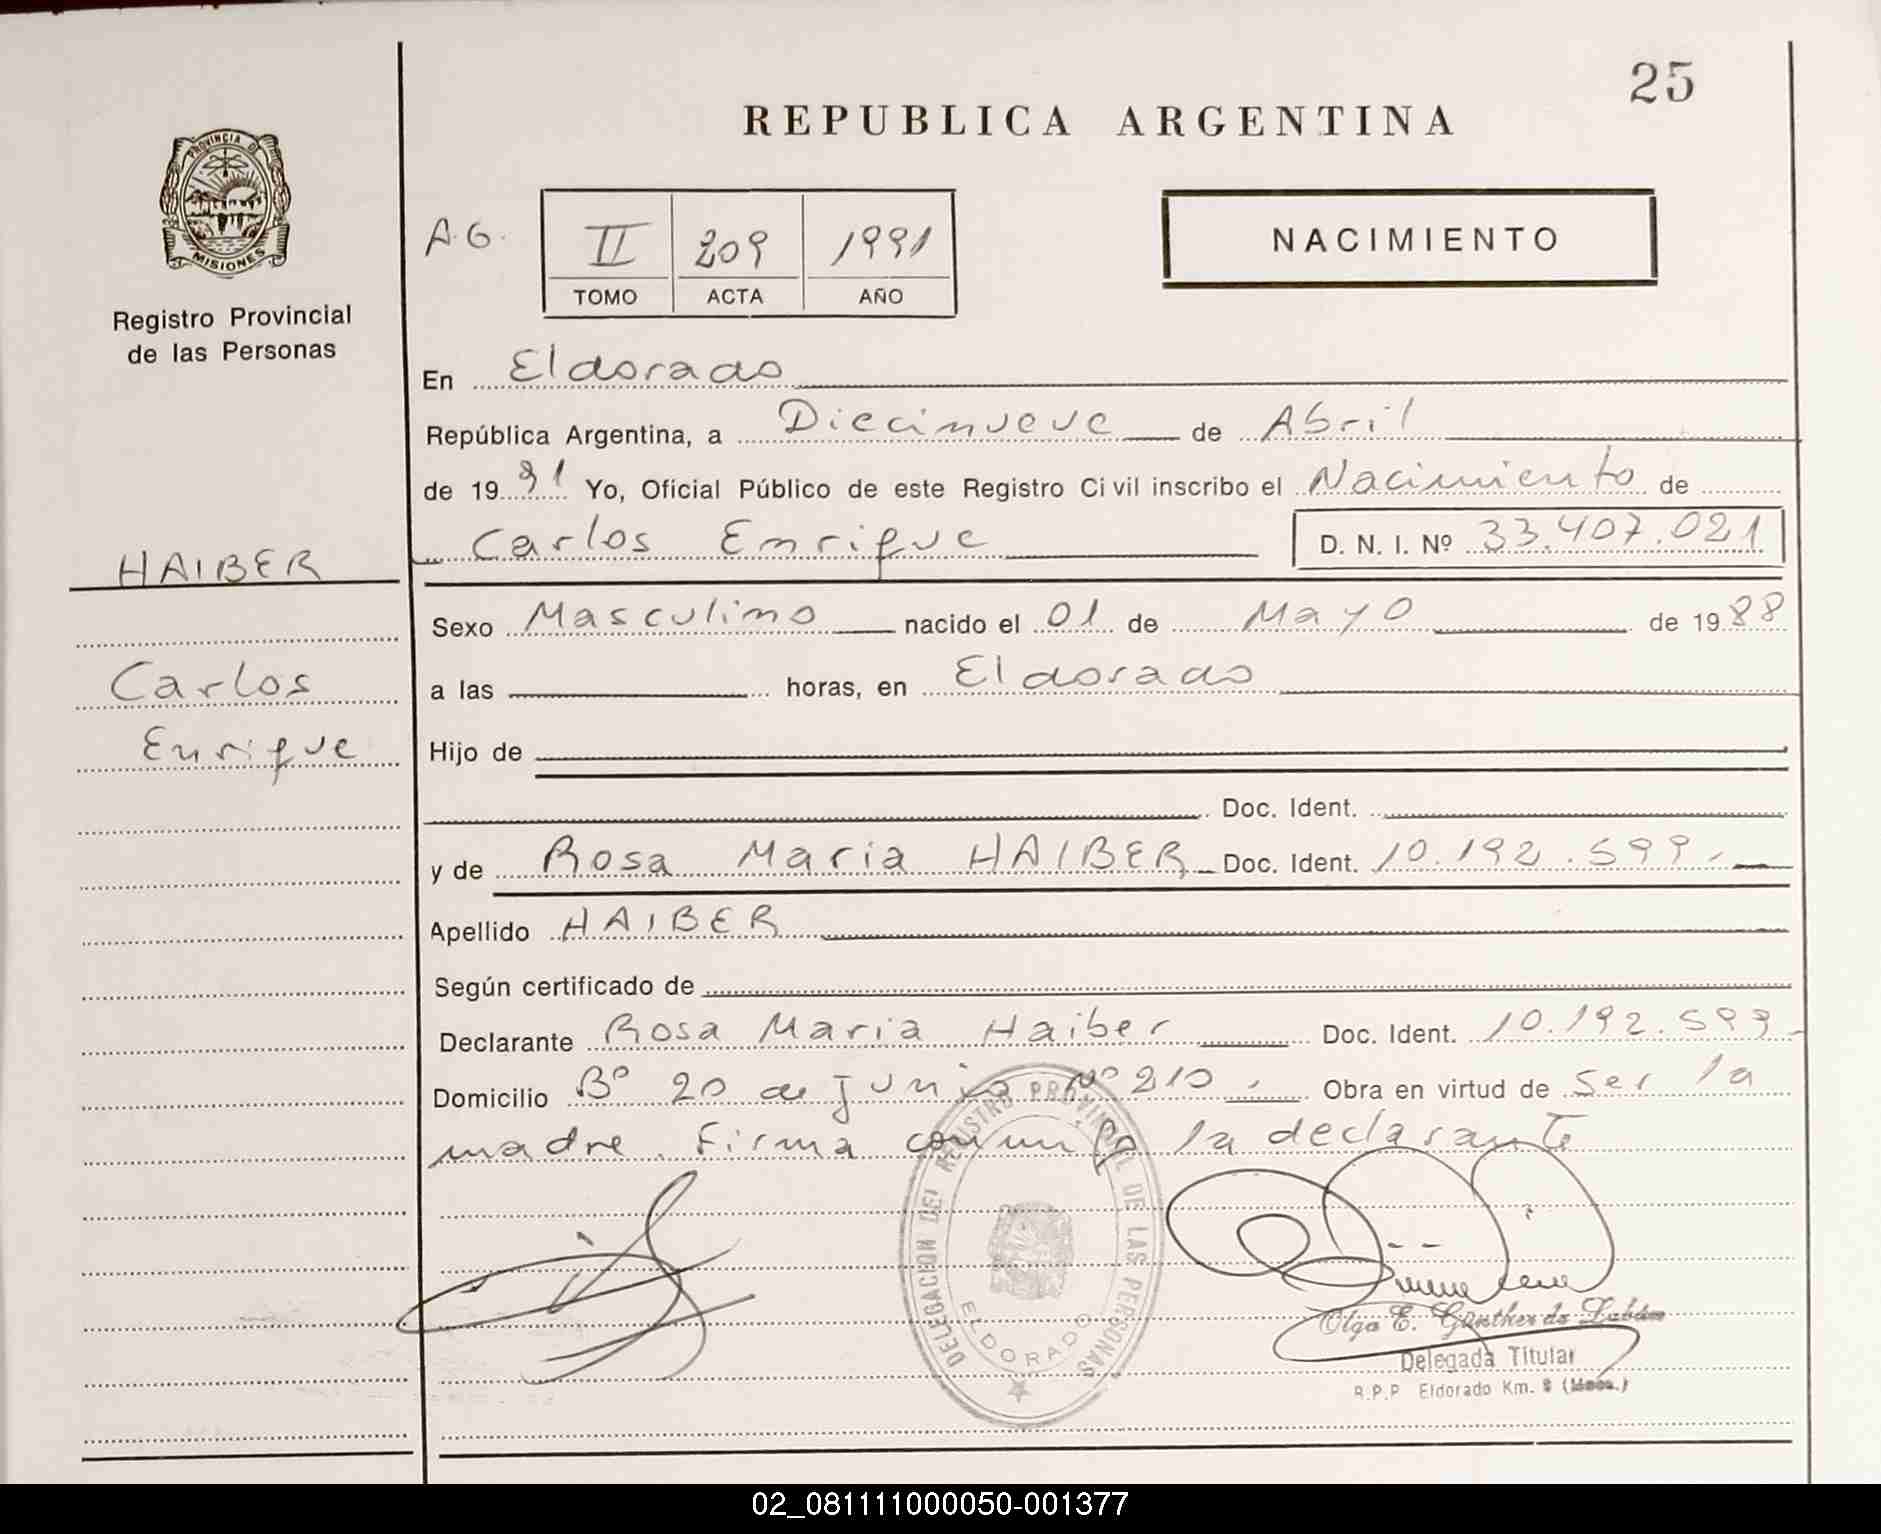 25
REPUBLICA ARGENTINA
PROVINCIA DE
MISIONES
Registro Provincial
de las Personas
A.G.
II 209 1991
TOMO ACTA AÑO
NACIMIENTO
En Eldorado
República Argentina, a Diecinueve de Abril
de 1991 Yo, Oficial Público de este Registro Civil inscribo el Nacimiento de
Carlos Enrique D. N. I. Nº 33.407.021
HAIBER
Carlos
Enrique
Sexo Masculino nacido el 01 de Mayo de 1988
a las horas, en Eldorado
Hijo de
Doc. Ident.
y de Rosa Maria HAIBER Doc. Ident. 10.192.599.
Apellido HAIBER
Según certificado de
Declarante Rosa Maria Haiber Doc. Ident. 10.192.599
Domicilio Bº 20 de Junio Nº 210. Obra en virtud de ser la
madre. Firma conmigo la declarante
DELEGACION DEL REGISTRO PROVINCIAL DE LAS PERSONAS
ELDORADO
Olga E. Günther de
Delegada Titular
R.P.P Eldorado Km. 8
02_081111000050-001377